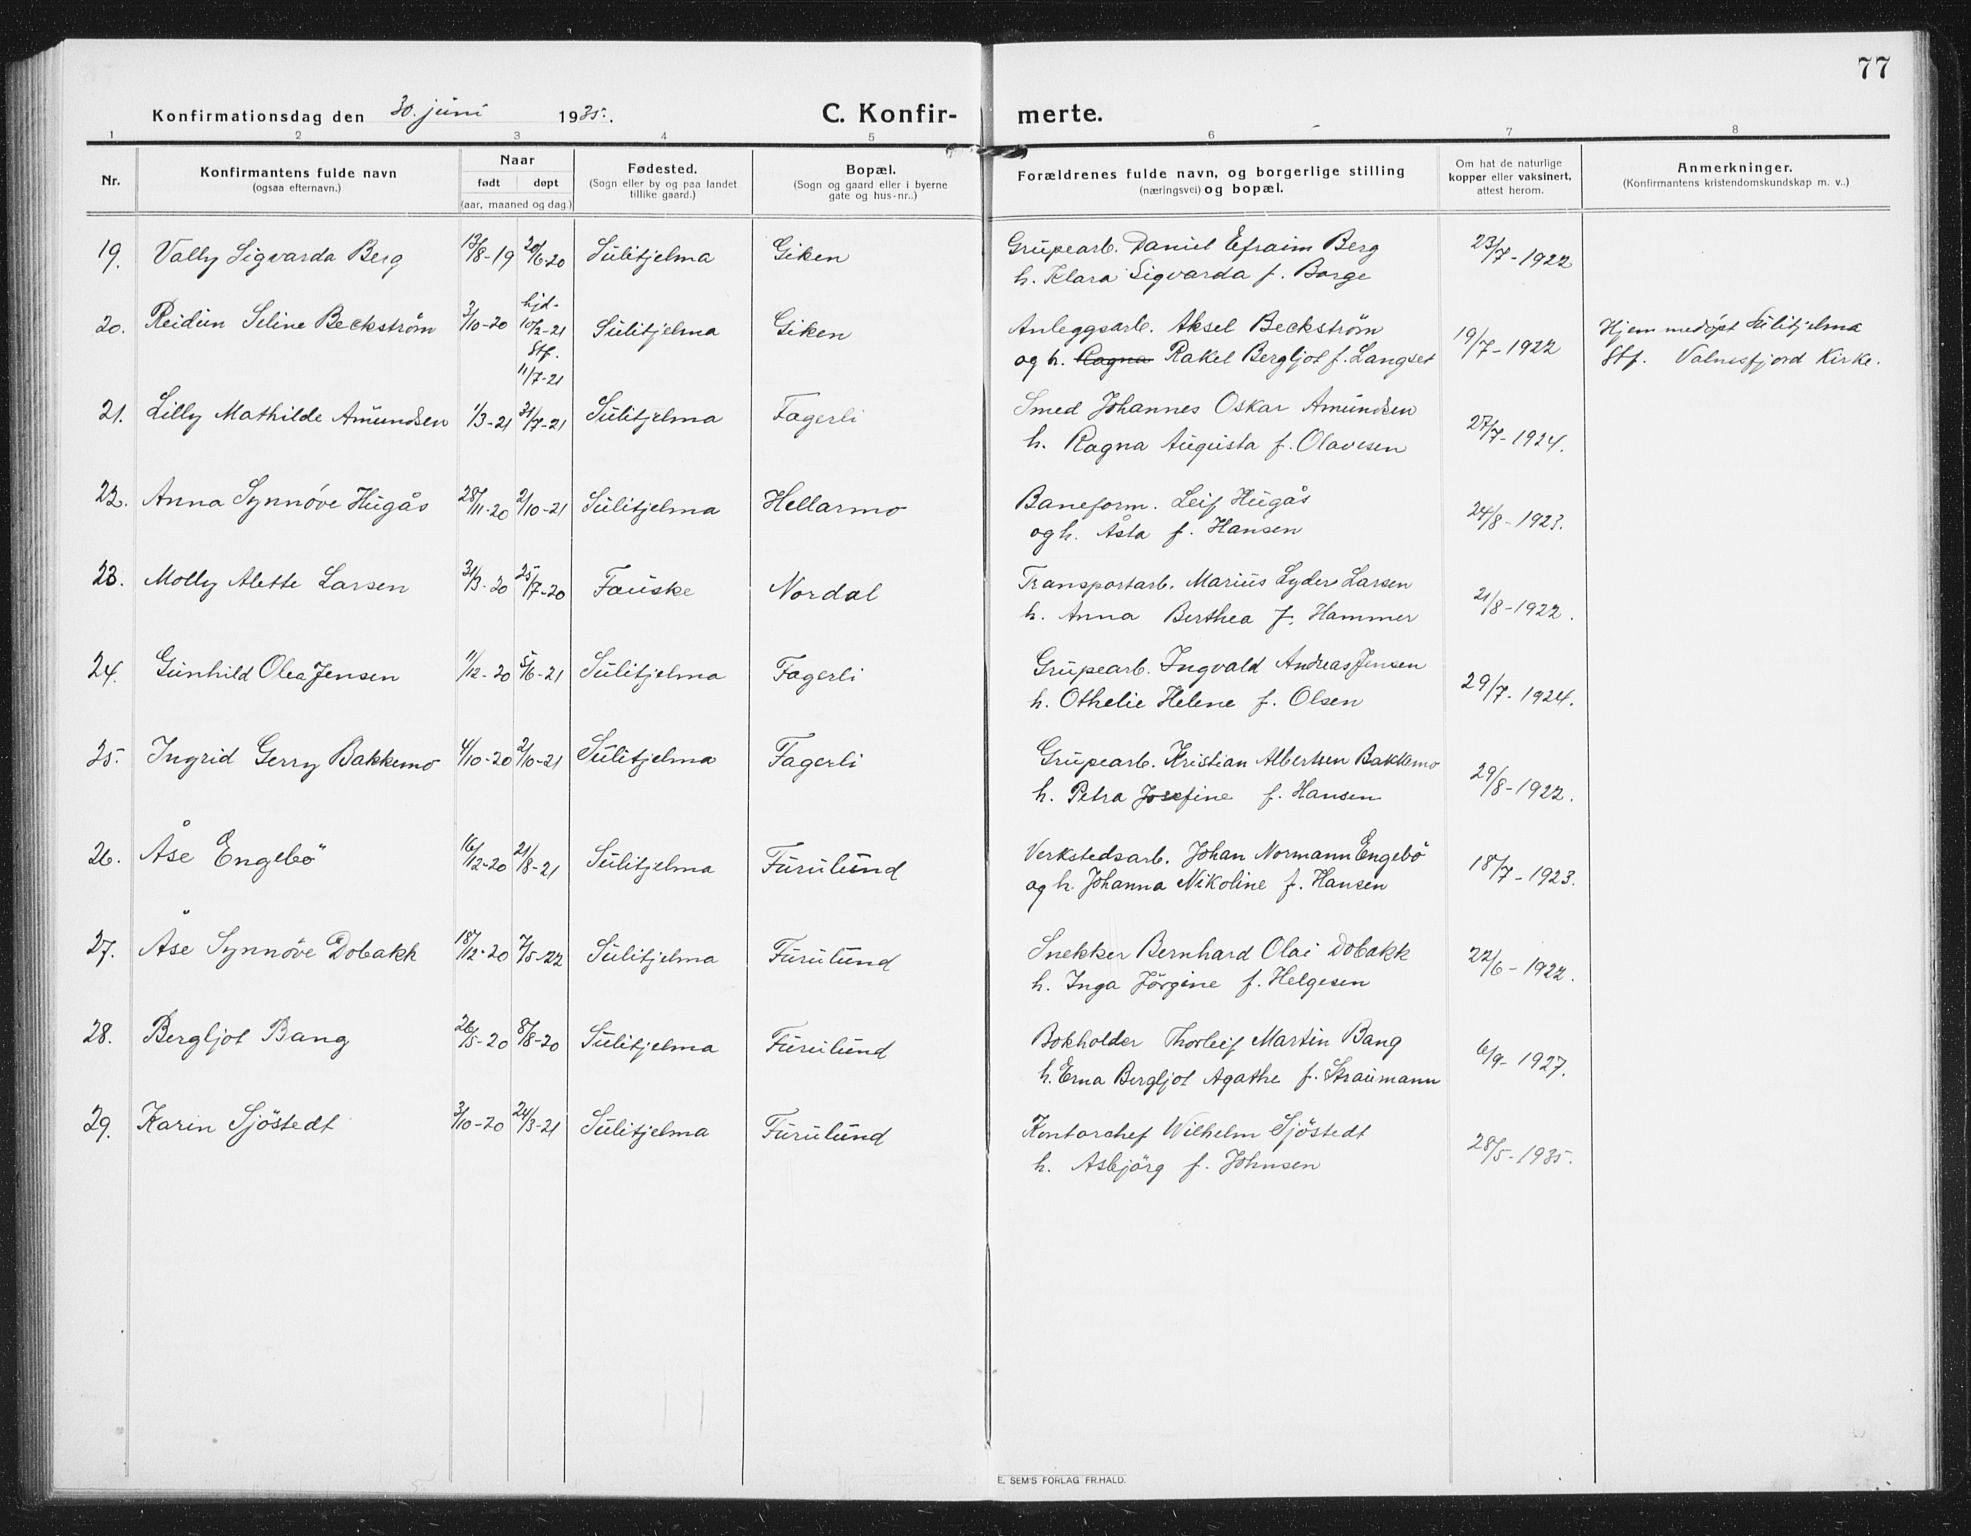 77
Konfirmationsdag den 30. juni 1935. C. Konfir- merte.
1 2 3 4 5 6 7 8
Nr. Konfirmantens fulde navn (ogsaa efternavn.) Naar født døpt (aar, maaned og dag.) Fødested. (Sogn eller by og paa landet tillike gaard.) Bopæl. (Sogn og gaard eller i byerne gate og hus-nr..) Forældrenes fulde navn, og borgerlige stilling (næringsvei) og bopæl. Om hat de naturlige kopper eller vaksinert, attest herom. Anmerkninger. (Konfirmantens kristendomskundskap m. v..)
19. Vally Sigvarda Berg 13/8-19 20/6-20 Sulitjelma Giken Grupearb. Daniel Efraim Berg 23/7-1922
h. Klara Sigvarda f. Borge
20. Reidun Seline Beckström 3/10-20 hjd. 10/2-21 Stf. 11/7-21 Sulitjelma Giken Anleggsarb. Aksel Beckström 19/7-1922 Hjemmedøpt Sulitjelma
og h. Ragna Rakel Bergljot f. Langset Stf. Valnesfjord Kirke.
21. Lilly Mathilde Amundsen 1/3-21 31/7-21 Sulitjelma Fagerli Smed Johannes Oskar Amundsen 27/7-1924.
h. Ragna Augusta f. Olavesen
22. Anna Synnöve Hugås 28/11-20 2/10-21 Sulitjelma Hellarmo Baneform. Leif Hugås 24/8-1923.
og h. Åsta f. Hansen
23. Molly Alette Larsen 31/3-20 25/7-20 Fauske Nordal Transportarb. Marius Lyder Larsen 21/8-1922.
h. Anna Berthea f. Hammer
24. Gunhild Olea Jensen 11/12-20 5/6-21 Sulitjelma Fagerli Grupearb. Ingvald Andreas Jensen 29/7-1924.
h. Othelie Helene f. Olsen
25. Ingrid Gerry Bakkemo 4/10-20 2/10-21 Sulitjelma Fagerli Grupearb. Kristian Albertsen Bakkemo 29/8-1922.
h. Petra Josefine f. Hansen
26. Åse Engebö 16/12-20 21/8-21 Sulitjelma Furulund Verkstedsarb. Johan Normann Engebö 18/7-1923.
og h. Johanna Nikoline f. Hansen
27. Åse Synnöve Dobakk 18/12-20 7/5-22 Sulitjelma Furulund Snekker Bernhard Olai Dobakk 22/6-1922.
h. Inga Jörgine f. Helgesen
28. Bergljot Bang 26/5-20 8/8-20 Sulitjelma Furulund Bokholder Thorleif Martin Bang 6/9-1927.
h. Erna Bergljot Agathe f. Straumann
29. Karin Sjöstedt 3/10-20 24/3-21 Sulitjelma Furulund Kontorchef Wilhelm Sjöstedt 28/5-1935.
h. Asbjörg f. Johnsen
E. SEM'S FORLAG FR.HALD.